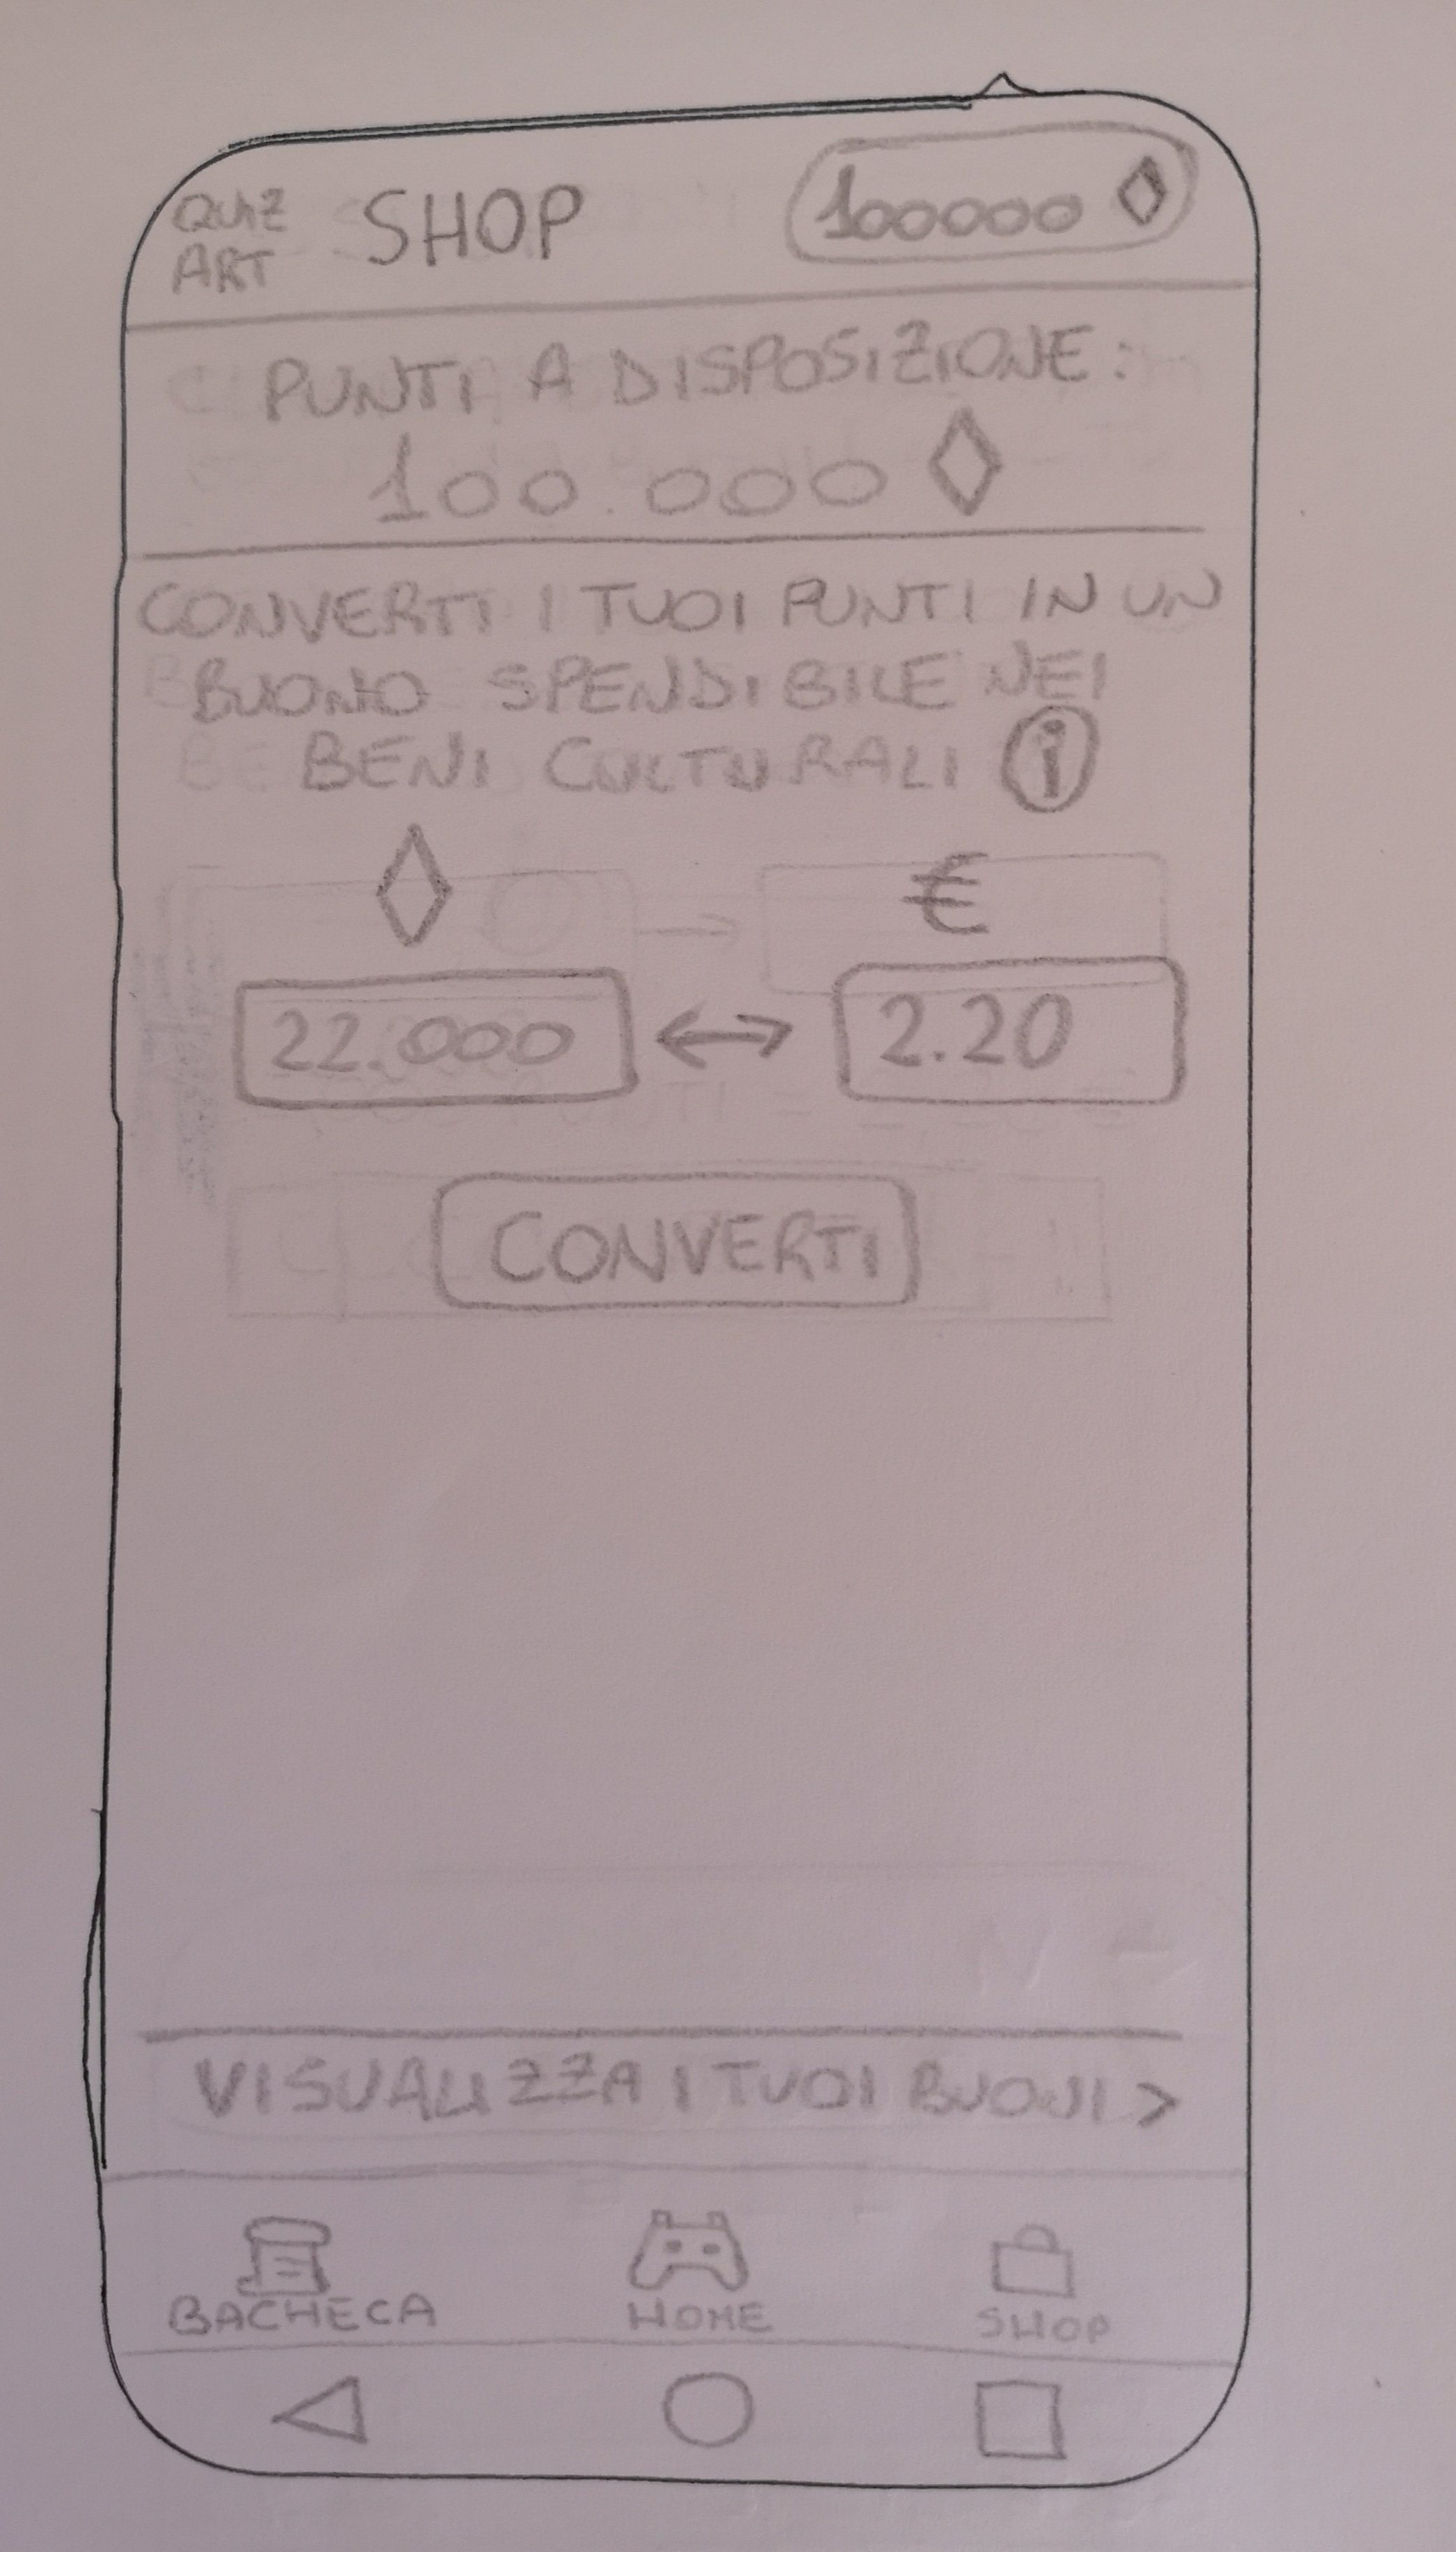 QUIZ
ART
SHOP
100000
PUNTI A DISPOSIZIONE:
100.000
CONVERTI I TUOI PUNTI IN UN
BUONO SPENDIBILE NEI
BENI CULTURALI i
€
22.000 ↔ 2.20
CONVERTI
VISUALIZZA I TUOI BUONI >
BACHECA HOME SHOP